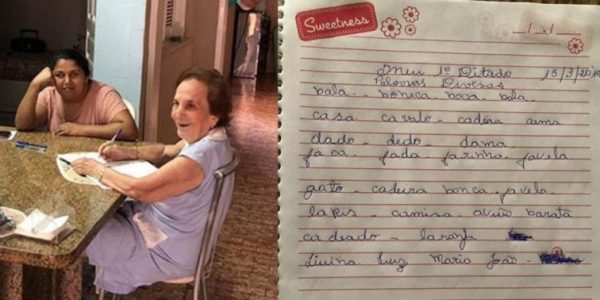 Sweetness
_/_/_
Meu 1º Ditado 15/3/201
Palavras Diversas
bala - boneca boxa bola -
casa cavalo - cadera ama
dado - dedo - dama
faca - fada farinha favela
gato - cadeira bonca - favela
lapis - camisa avião barata
cadeado - laranja
divina luz Maria João -